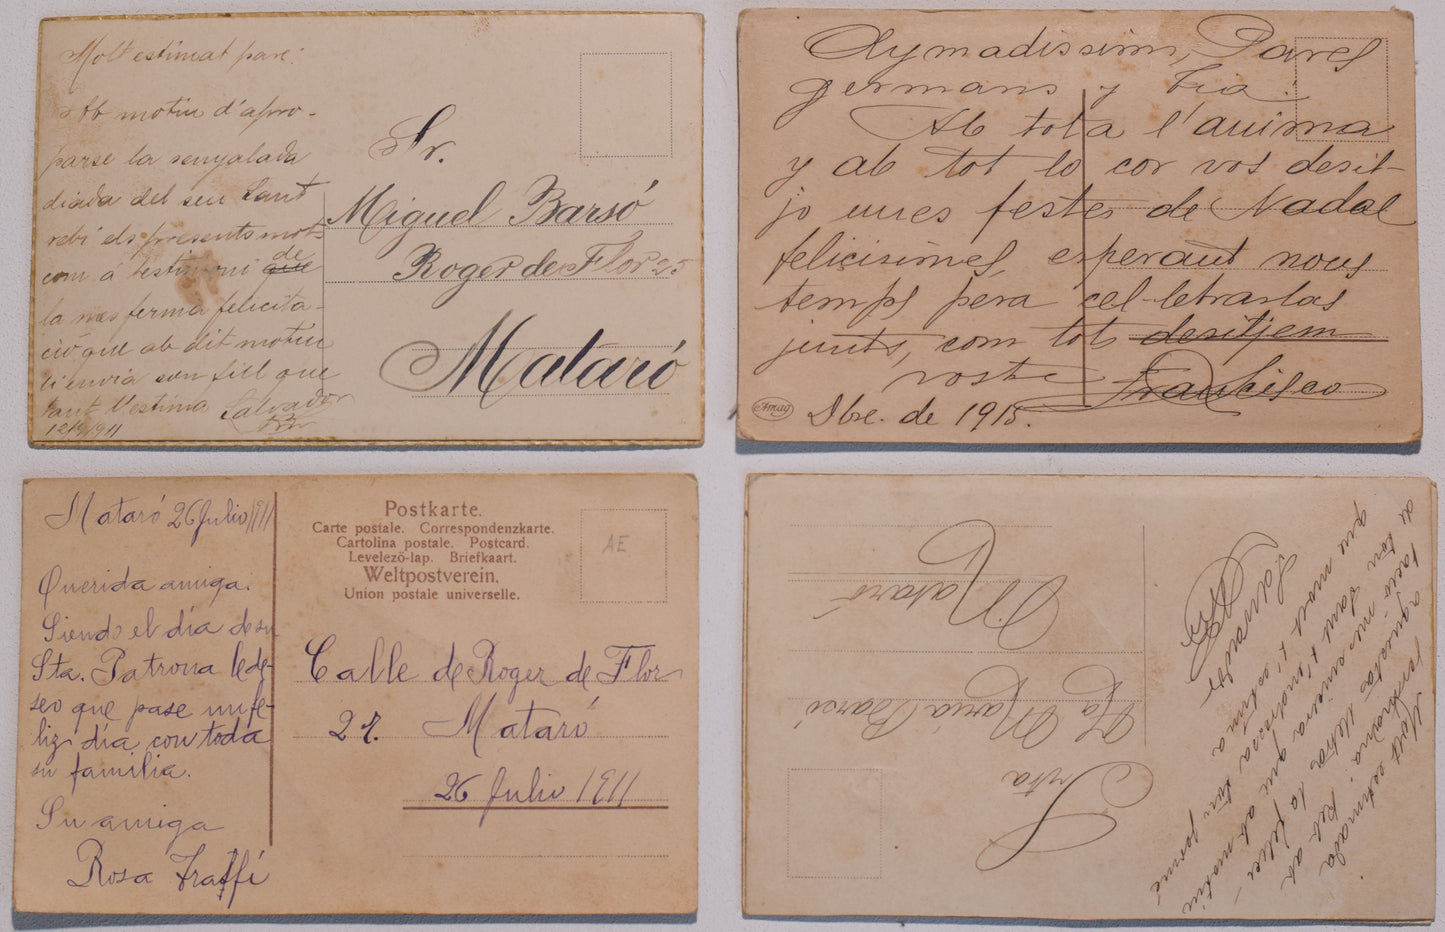 Molt estimat pare:
Ab motiu d'apro-
parse la senyalada
diada del seu Sant
rebi els presents mot-
com á testimoni que de
la mes ferma felicita-
ció que ab dit motiu
li envia son fill que
tant l'estima Salvador
12/9/1911
Sr.
Miguel Barsó
Roger de Flor 25
Mataró
Aymadissims, Pares
germans y tia:
Ab tota l'anima
y ab tot lo cor vos desit-
jo unes festes de Nadal
felicisimes, esperant nous
temps pera cel-lebrarlas
junts, com tot desitjem
vostre Francisco
Dbre. de 1915.
Amag
Mataró 26 Julio 1911
Querida amiga.
Siendo el día de su
Sta. Patrona le de-
seo que pase un fe-
liz día con toda
su familia.
Su amiga
Rosa
Postkarte.
Carte postale. Correspondenzkarte.
Cartolina postale. Postcard.
Levelezö-lap. Briefkaart.
Weltpostverein.
Union postale universelle.
AE
Calle de Roger de Flor
27. Mataró
26 Julio 1911
Srta
Maria Barsó
Mataró
Molt estimada
aquestas lletras la felici-
que ab motiu
de ton Sant
que molt t'estima
Salvador